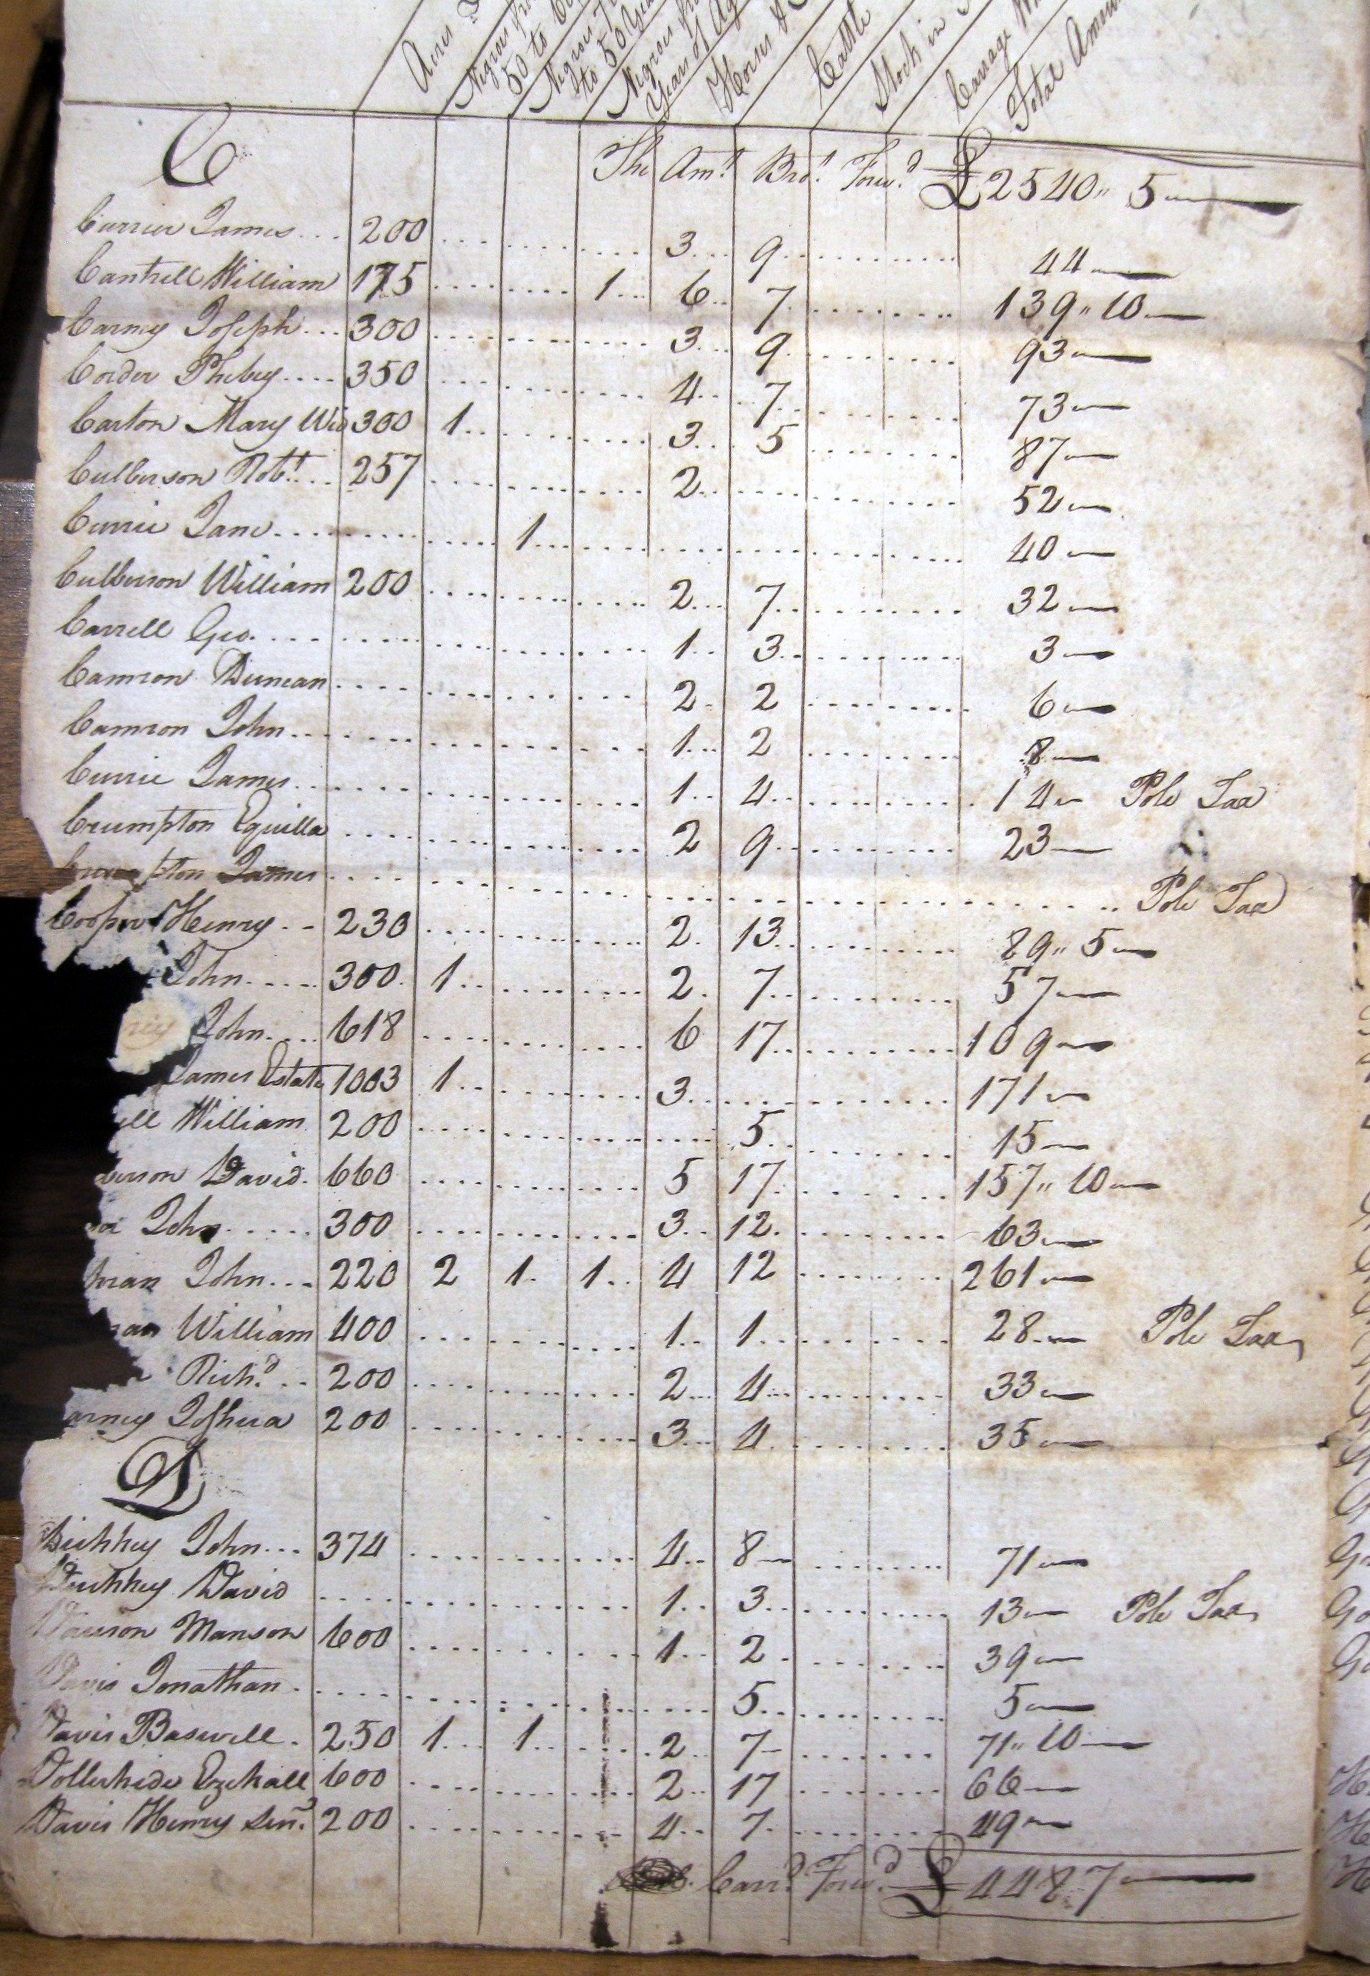 Acres
Negroes from 50 to 60
Negroes to 50 Years
Negroes Years of Age
Horses &
Cattle
Stock in
Carriage
Total Amount
C The Amt. Bro.t Forwd. £2540,, 5
Currier James 200 3 9 44
Cantrell William 175 1 6 7 139,, 10
Carney Joseph 300 3 9 93
Corder Phebey 350 4 7 73
Carton Mary Wid 300 1 3 5 87
Culberson Robt. 257 2 52
Currie Jane 1 40
Culberson William 200 2 7 32
Carrell Geo. 1 3 3
Camron Duncan 2 2 6
Camron John 1 2 8
Currie James 1 4 14 Pole Tax
Crumpton Equilla 2 9 23
Crumpton James Pole Tax
Cooper Henry 230 2 13 89,, 5
John 300 1 2 7 57
ney John 618 6 17 109
James Estate 1003 1 3 171
ell William 200 5 15
berson David 660 5 17 157,, 10
John 300 3 12 63
man John 220 2 1 1 4 12 261
man William 400 1 1 28 Pole Tax
Richd. 200 2 4 33
arney Joshua 200 3 4 35
D
Dickkey John 374 4 8 71
Dickkey David 1 3 13 Pole Tax
Dawson Manson 600 1 2 39
Davis Jonathan 5 5
Davis Baswell 250 1 1 2 7 71,, 10
Dollerhide Ezekall 600 2 17 66
Davis Henry Senr. 200 4 7 49
Carrd. Forwd. £4487